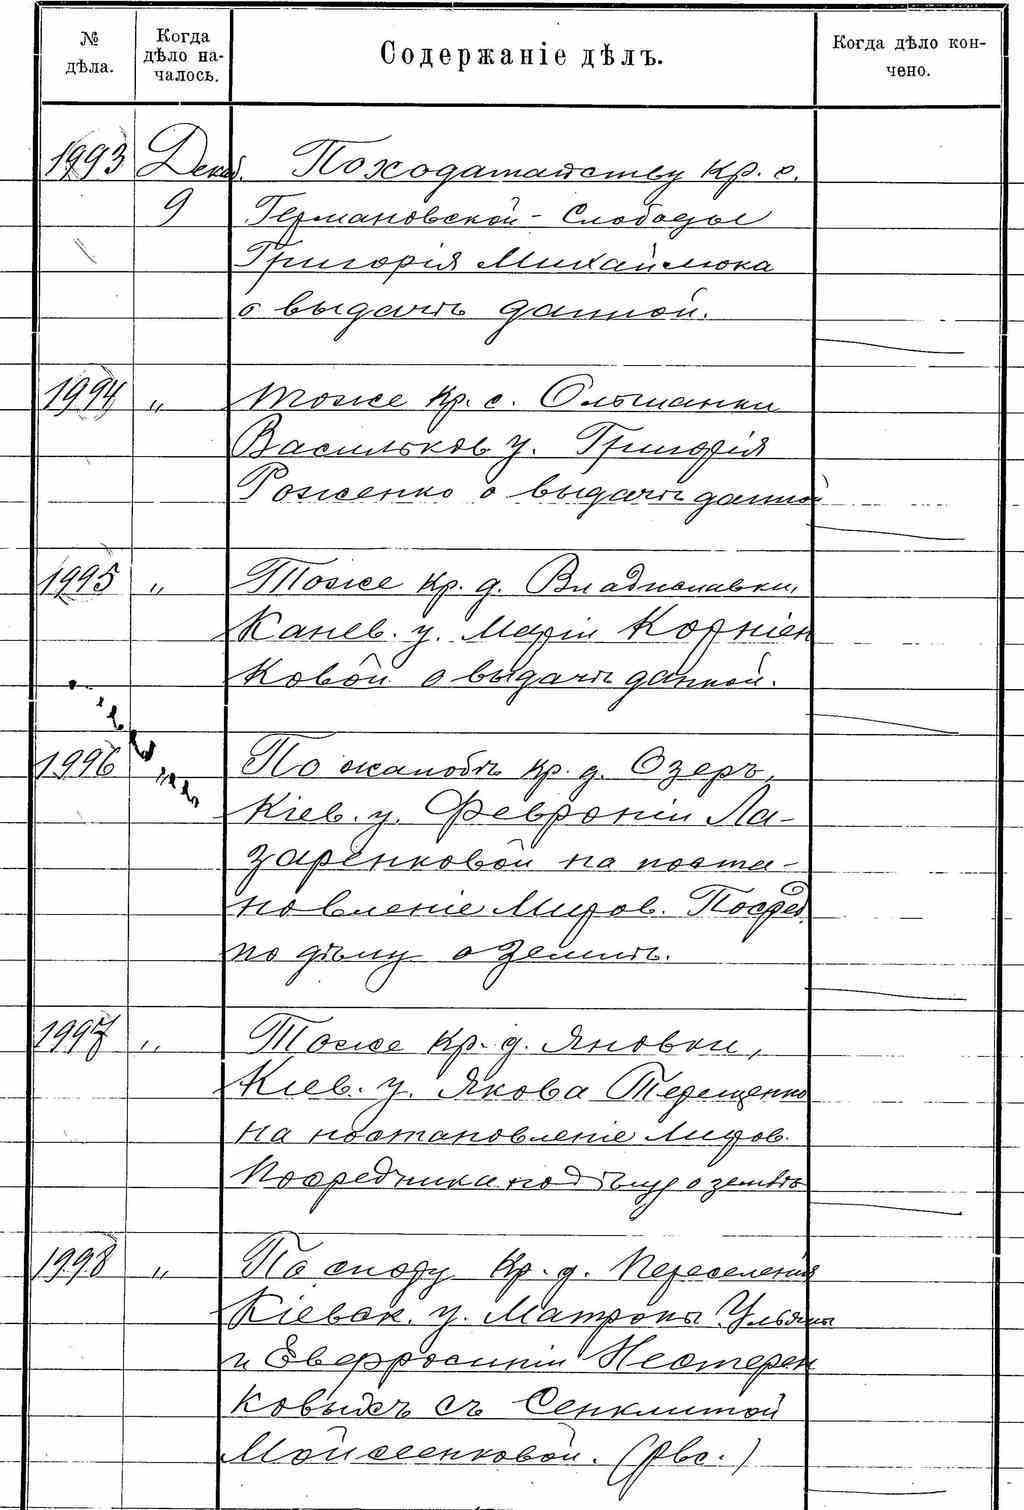 № дѣла.
Когда дѣло на-чалось.
Содержаніе дѣлъ.
Когда дѣло кон-чено.
1993 Декаб. По ходатайству кр. с.
9 Германовской-Слободы
Григорія Михайлюка
о выдачѣ данной.
1994 " тоже кр. с. Ольшанки
Васильков. у. Григорія
Роженко о выдачѣ данной
1995 " Тоже кр. д. Владиславки,
Канев. у. Маріи Корніен
ковой о выдачѣ данной.
1996 " По жалобѣ кр. д. Озеръ,
Кіев. у. Февроніи Ла-
заренковой на поста-
новленіе Миров. Посред.
по дѣлу о землѣ.
1997 " Тоже кр. д. Яновки,
Кіев. у. Якова Терещенко
на постановленіе Миров.
Посредника по дѣлу о землѣ
1998 " По спору кр. д. Переселенія
Кіевск. у. Матроны Ульяны
и Евфросиніи Нестерен
ковыхъ съ Сенклитой
Мойсеенковой.